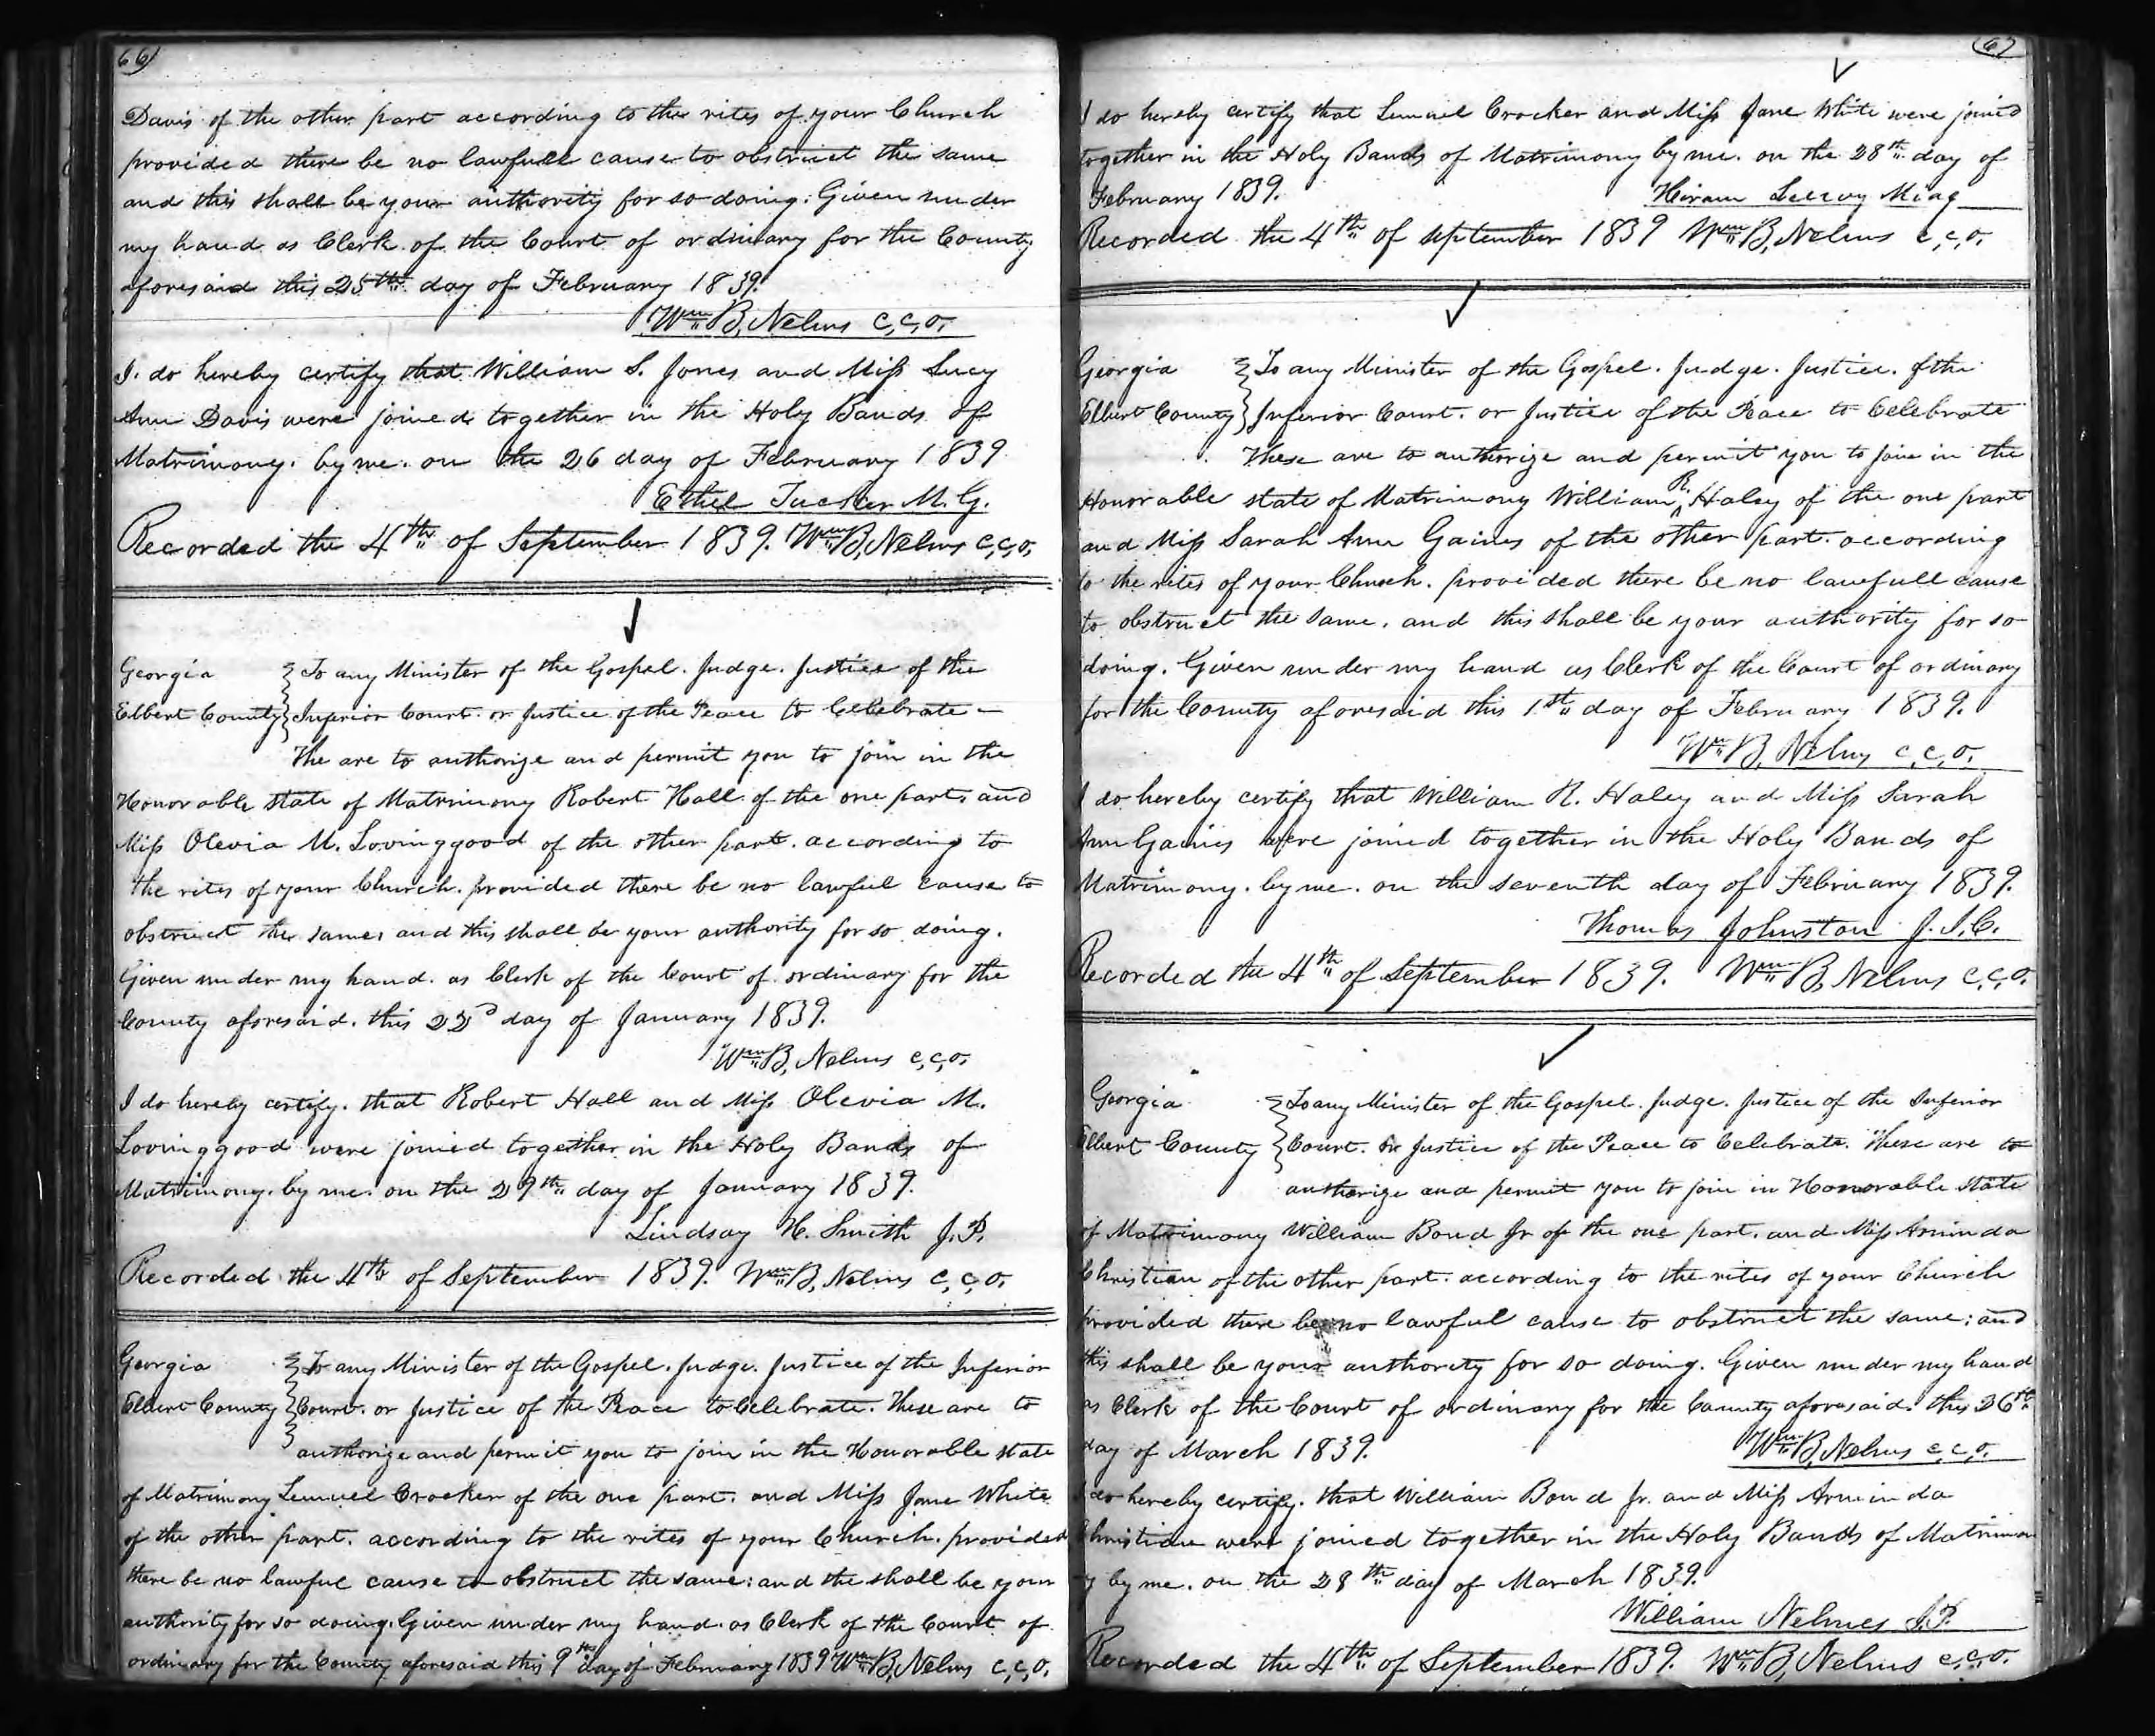 66
Davis of the other part according to the rites of your Church
provided there be no lawfull cause to obstruct the same
and this shall be your authority for so doing. Given under
my hand as Clerk of the Court of ordinary for the County
aforesaid this 25th day of February 1839.
Wm B. Nelms c,c,o,
I do hereby certify that William S. Jones and Miss Lucy
Ann Davis were joined together in the Holy Bands of
Matrimony. by me. on the 26 day of February 1839
Ethel Tucker M. G.
Recorded the 4th of September 1839. Wm B, Nelms c,c,o,
Georgia } To any Minister of the Gospel. Judge. Justice of the
Elbert County } Inferior Court. or Justice of the Peace to Celebrate
The are to authorize and permit you to join in the
Honorable state of Matrimony Robert Hall of the one part and
Miss Olevia M. Lovinggood of the other part. according to
the rites of your Church. provided there be no lawful cause to
obstruct the same. and this shall be your authority for so doing.
Given under my hand. as Clerk of the Court of ordinary for the
County aforesaid. this 22d day of January 1839.
Wm B, Nelms c,c,o,
I do hereby certify. that Robert Hall and Miss Olevia M.
Lovinggood were joined together in the Holy Bands of
Matrimony. by me. on the 29th day of January 1839.
Lindsay H. Smith J. P.
Recorded the 4th of September 1839. Wm B, Nelms c,c,o,
Georgia } To any Minister of the Gospel. Judge. Justice of the Inferior
Elbert County } Court. or Justice of the Peace to Celebrate. These are to
authorize and permit you to join in the Honorable state
of Matrimony Lemuel Crocker of the one part. and Miss Jane White
of the other part. according to the rites of your Church. provided
there be no lawful cause to obstruct the same: and the shall be your
authority for so doing. Given under my hand. as Clerk of the Court of
ordinary for the County aforesaid this 9th day of February 1839 Wm B, Nelms c,c,o,
67
I do hereby certify that Lemuel Crocker and Miss Jane White were joined
together in the Holy Bands of Matrimony by me. on the 28th day of
February 1839. Hiram
Recorded the 4th of September 1839 Wm B, Nelms c,c,o,
Georgia } To any Minister of the Gospel. Judge. Justice. of the
Elbert County } Inferior Court. or Justice of the Peace to Celebrate
These are to authorize and permit you to join in the
Honorable state of Matrimony William R. Haley of the one part
and Miss Sarah Ann Gaines of the other part. according
to the rites of your Church. provided there be no lawfull cause
to obstruct the same. and this shall be your authority for so
doing. Given under my hand as Clerk of the Court of ordinary
for the County aforesaid this 1st day of February 1839.
Wm B, Nelms c,c,o,
I do hereby certify that William R. Haley and Miss Sarah
Ann Gaines were joined together in the Holy Bands of
Matrimony. by me. on the seventh day of February 1839.
Thomas Johnston J. I. C.
Recorded the 4th of September 1839. Wm B, Nelms c,c,o.
Georgia } To any Minister of the Gospel. Judge. Justice of the Inferior
Elbert County } Court. or Justice of the Peace to Celebrate. These are to
authorize and permit you to join in Honorable state
of Matrimony William Bond Jr of the one part. and Miss Arminda
Christian of the other part. according to the rites of your Church
provided there be no lawful cause to obstruct the same; and
this shall be your authority for so doing. Given under my hand
as Clerk of the Court of ordinary for the County aforesaid. this 26th
day of March 1839. Wm B, Nelms c,c,o,
I do hereby certify. that William Bond Jr. and Miss Arminda
Christian were joined together in the Holy Bands of Matrimon
y by me. on the 28th day of March 1839.
William Nelmes J. P.
Recorded the 4th of September 1839. Wm B, Nelms c,c,o.